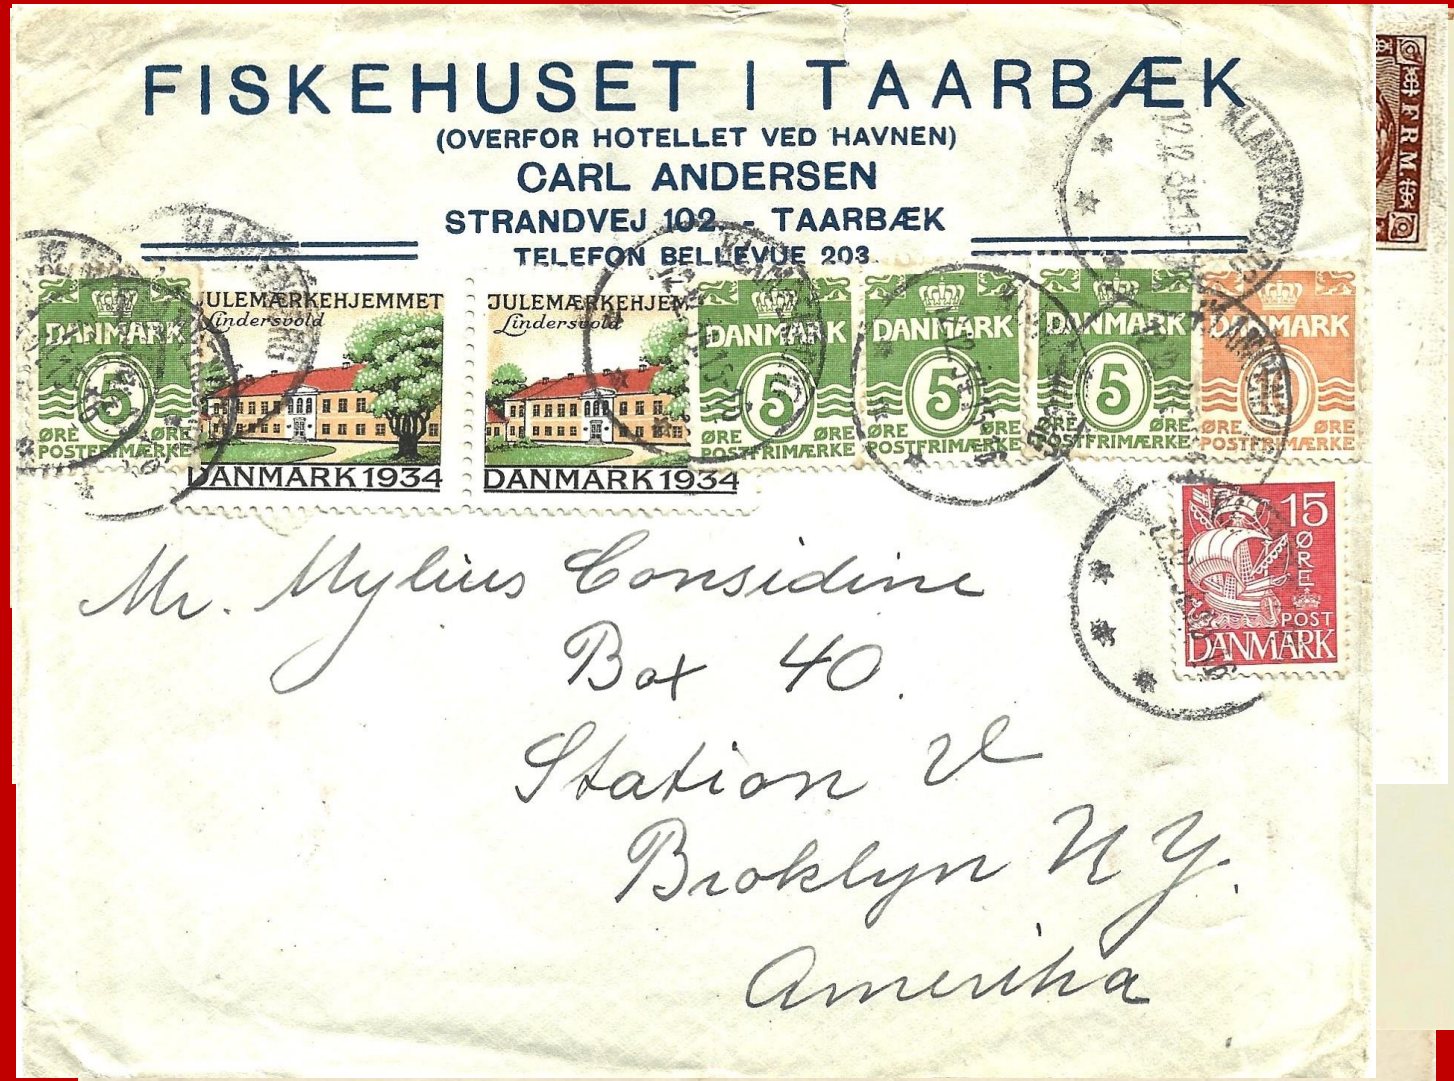 FISKEHUSET I TAARBÆK
(OVERFOR HOTELLET VED HAVNEN)
CARL ANDERSEN
STRANDVEJ 102 - TAARBÆK
TELEFON BELLEVUE 203
KLAMPENBORG
12.12.34.15-
FRM
KLAMPENBORG
DANMARK
5
ØRE ØRE
POSTFRIMÆRKE
JULEMÆRKEHJEMMET
Lindersvold
DANMARK 1934
JULEMÆRKEHJEM
Lindersvold
DANMARK 1934
DANMARK
5
ØRE ØRE
POSTFRIMÆRKE
DANMARK
5
ØRE ØRE
POSTFRIMÆRKE
DANMARK
5
ØRE ØRE
POSTFRIMÆRKE
DANMARK
10
ØRE ØRE
POSTFRIMÆRKE
15
ØRE
POST
DANMARK
Mr. Mylius Considine
Box 40.
Station V
Broklyn N Y.
Amerika